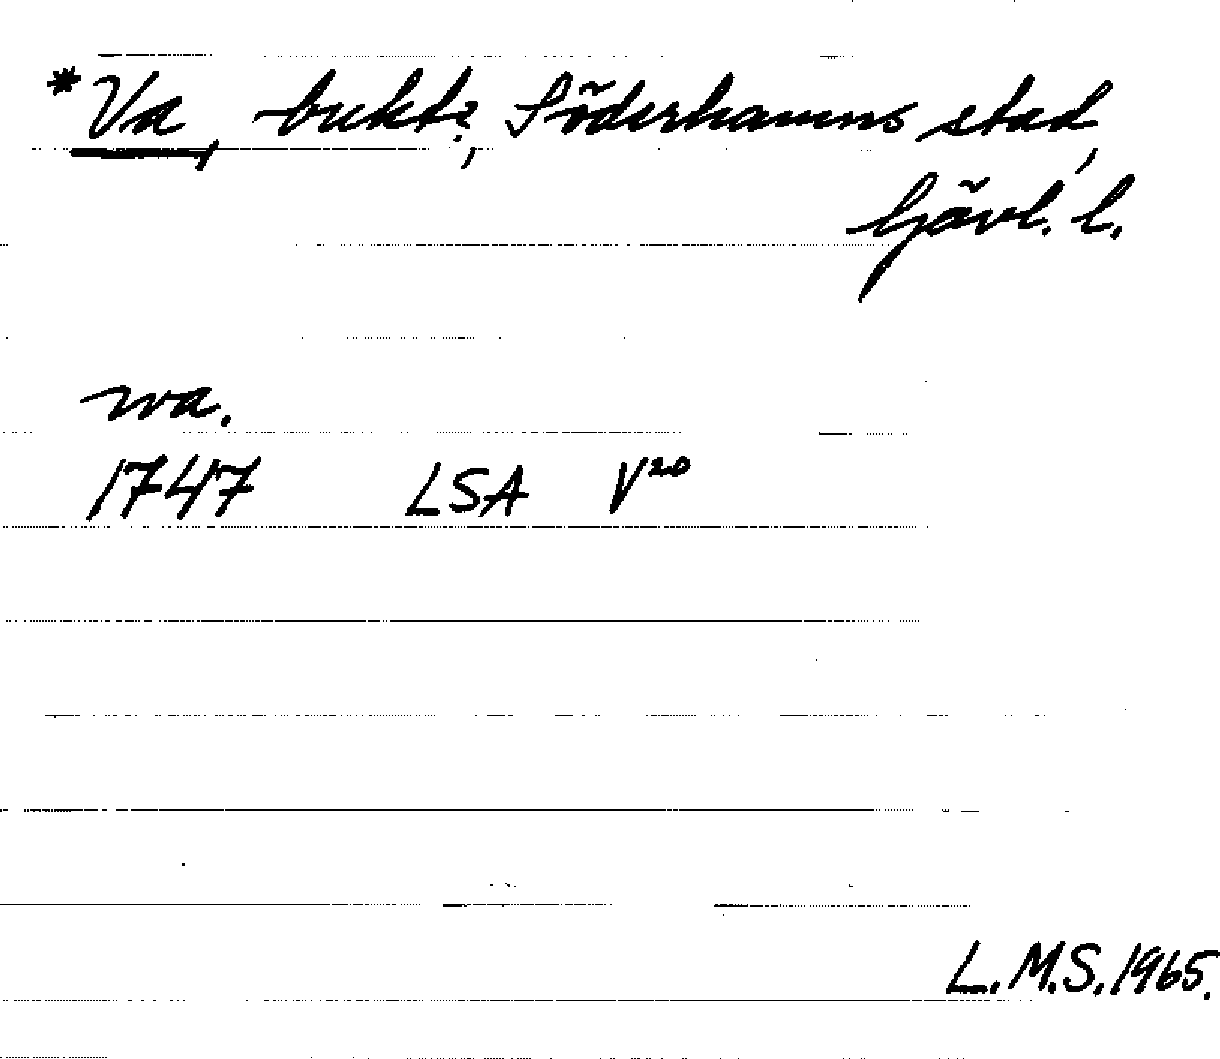 *Va, bukt?, Söderhamns stad,
Gävl. l.
wa.
1747 LSA V²⁰
L.M.S. 1965.